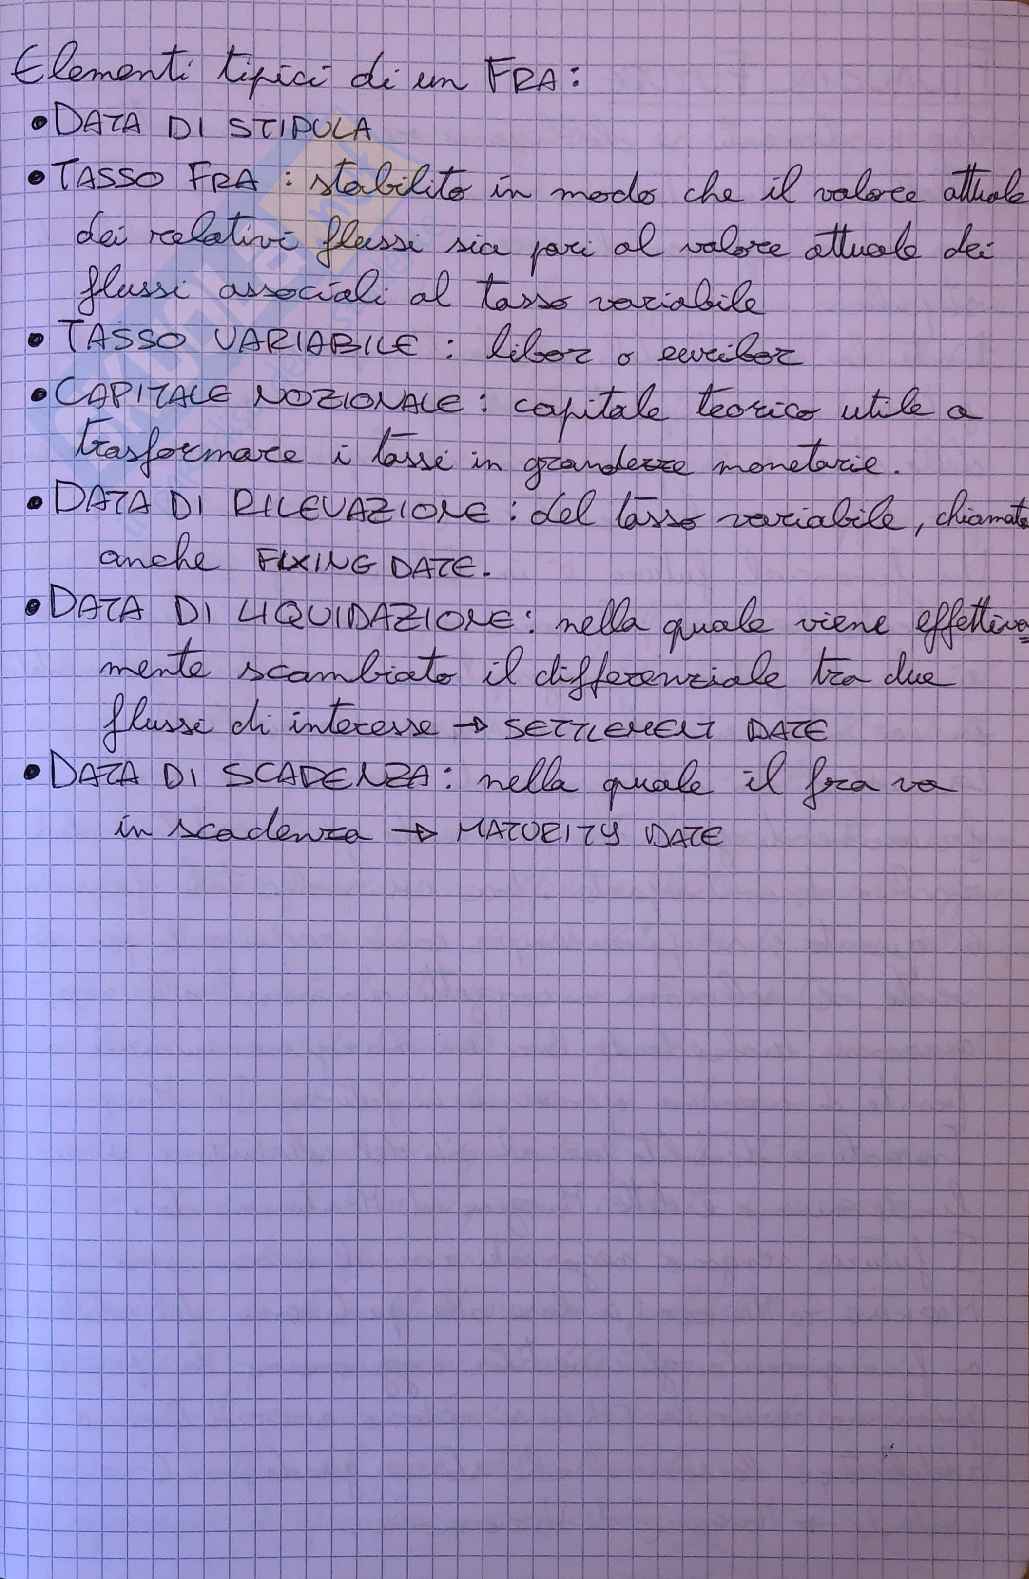 Elementi tipici di un FRA:
• DATA DI STIPULA
• TASSO FRA : stabilito in modo che il valore attuale
dei relativi flussi sia pari al valore attuale dei
flussi associati al tasso variabile
• TASSO VARIABILE : libor o euribor
• CAPITALE NOZIONALE : capitale teorico utile a
trasformare i tassi in grandezze monetarie.
• DATA DI RILEVAZIONE : del tasso variabile, chiamata
anche FIXING DATE.
• DATA DI LIQUIDAZIONE : nella quale viene effettiva
mente scambiato il differenziale tra due
flussi di interesse → SETTLEMENT DATE
• DATA DI SCADENZA : nella quale il fra va
in scadenza → MATURITY DATE